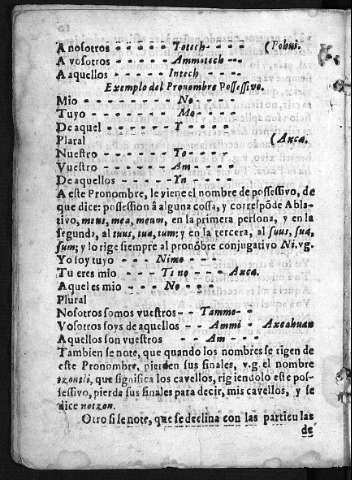 A nosotros - - - - - Totech - - - - (Pobus.
A vosotros - - - - - Ammotech - -
A aquellos - - - - - Intech - - - -
Exemplo del Pronombre Possessivo.
Mio - - - - - - - No - - - -
Tuyo - - - - - - - Mo - - - -
De aquel - - - - - - Y - - - -
Plaral (Axca.
Nuestro - - - - - To - - - -
Vuestro - - - - - Am - - - -
De aquellos - - - - Yn - - - -
A este Pronombre, le viene el nombre de possessivo, de
que dice: possession à alguna cossa, y correspõde Abla-
tivo, meus, mea, meum, en la primera persona, y en la
segunda, al tuus, tua, tum; y en la tercera, al suus, sua,
sum; y lo rige siempre al pronõbre conjugativo Ni. vg.
Yo soy tuyo - - - - Nimo - -
Tu eres mio - - - - Ti no - - - Axca.
Aquel es mio - - - - No - - -
Plural
Nosotros somos vuestros - - Tammo - -
Vosotros soys de aquellos - - Ammi - Axcahuan
Aquellos son vuestros - - Am - - -
Tambien se note, que quando los nombres se rigen de
este Pronombre, pierden sus finales, v.g. el nombre
tzontli, que significa los cavellos, rigiendolo este pos-
sessivo, pierda sus finales para decir, mis cavellos, y se
dice notzon.
Otro si se note, que se declina con las particulas
de